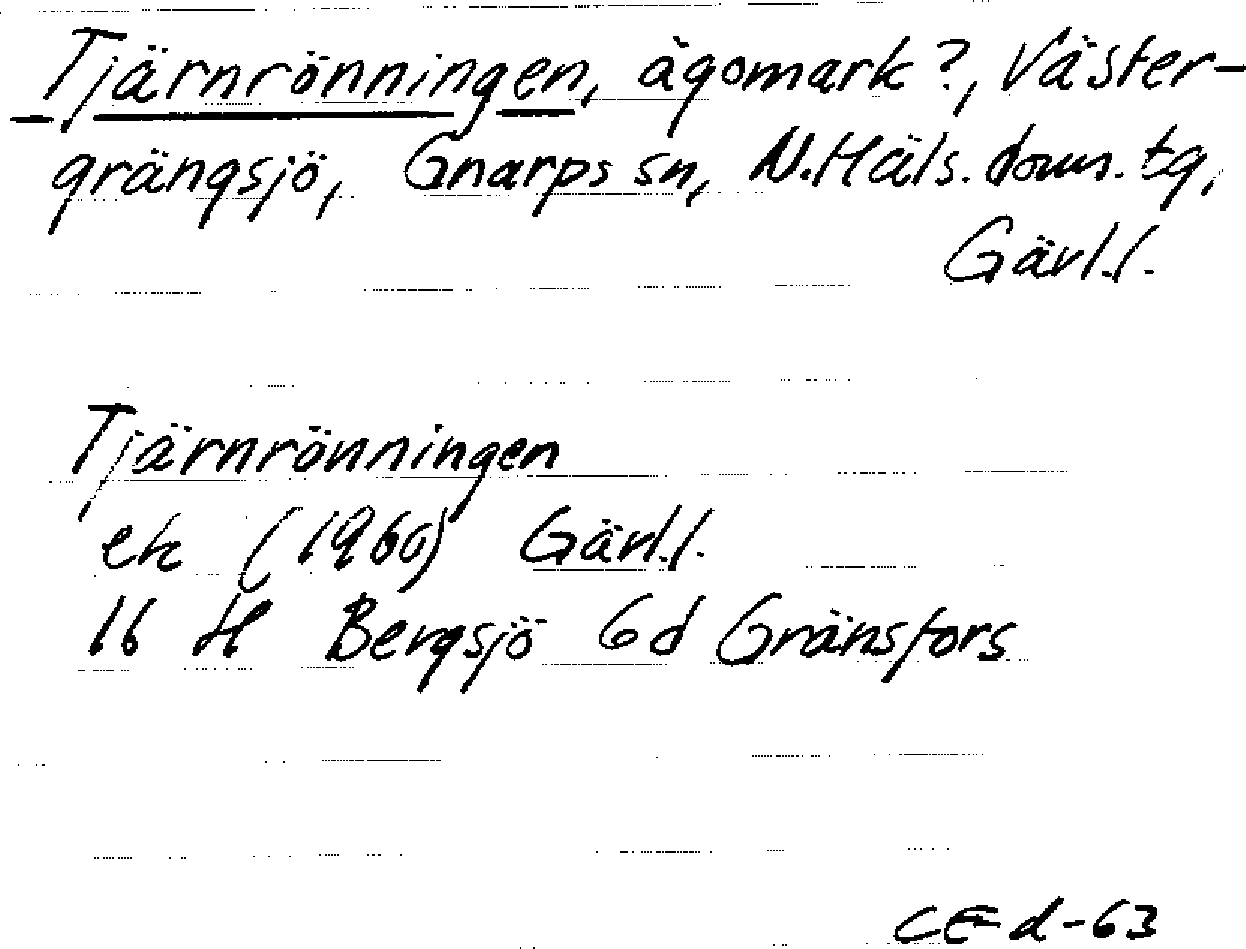 Tjärnrönningen, ägomark?, Väster-
grängsjö, Gnarps sn, N.Häls. doms. tg,
Gävl.l.
Tjärnrönningen
ek (1960) Gävl.l.
16 H Bergsjö 6d Gränsfors
CE d-63